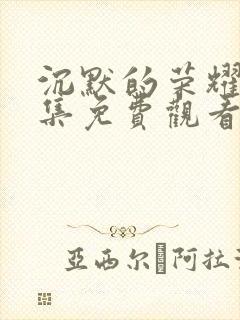 沉默的荣耀
集免費觀看
亞西尔·阿拉